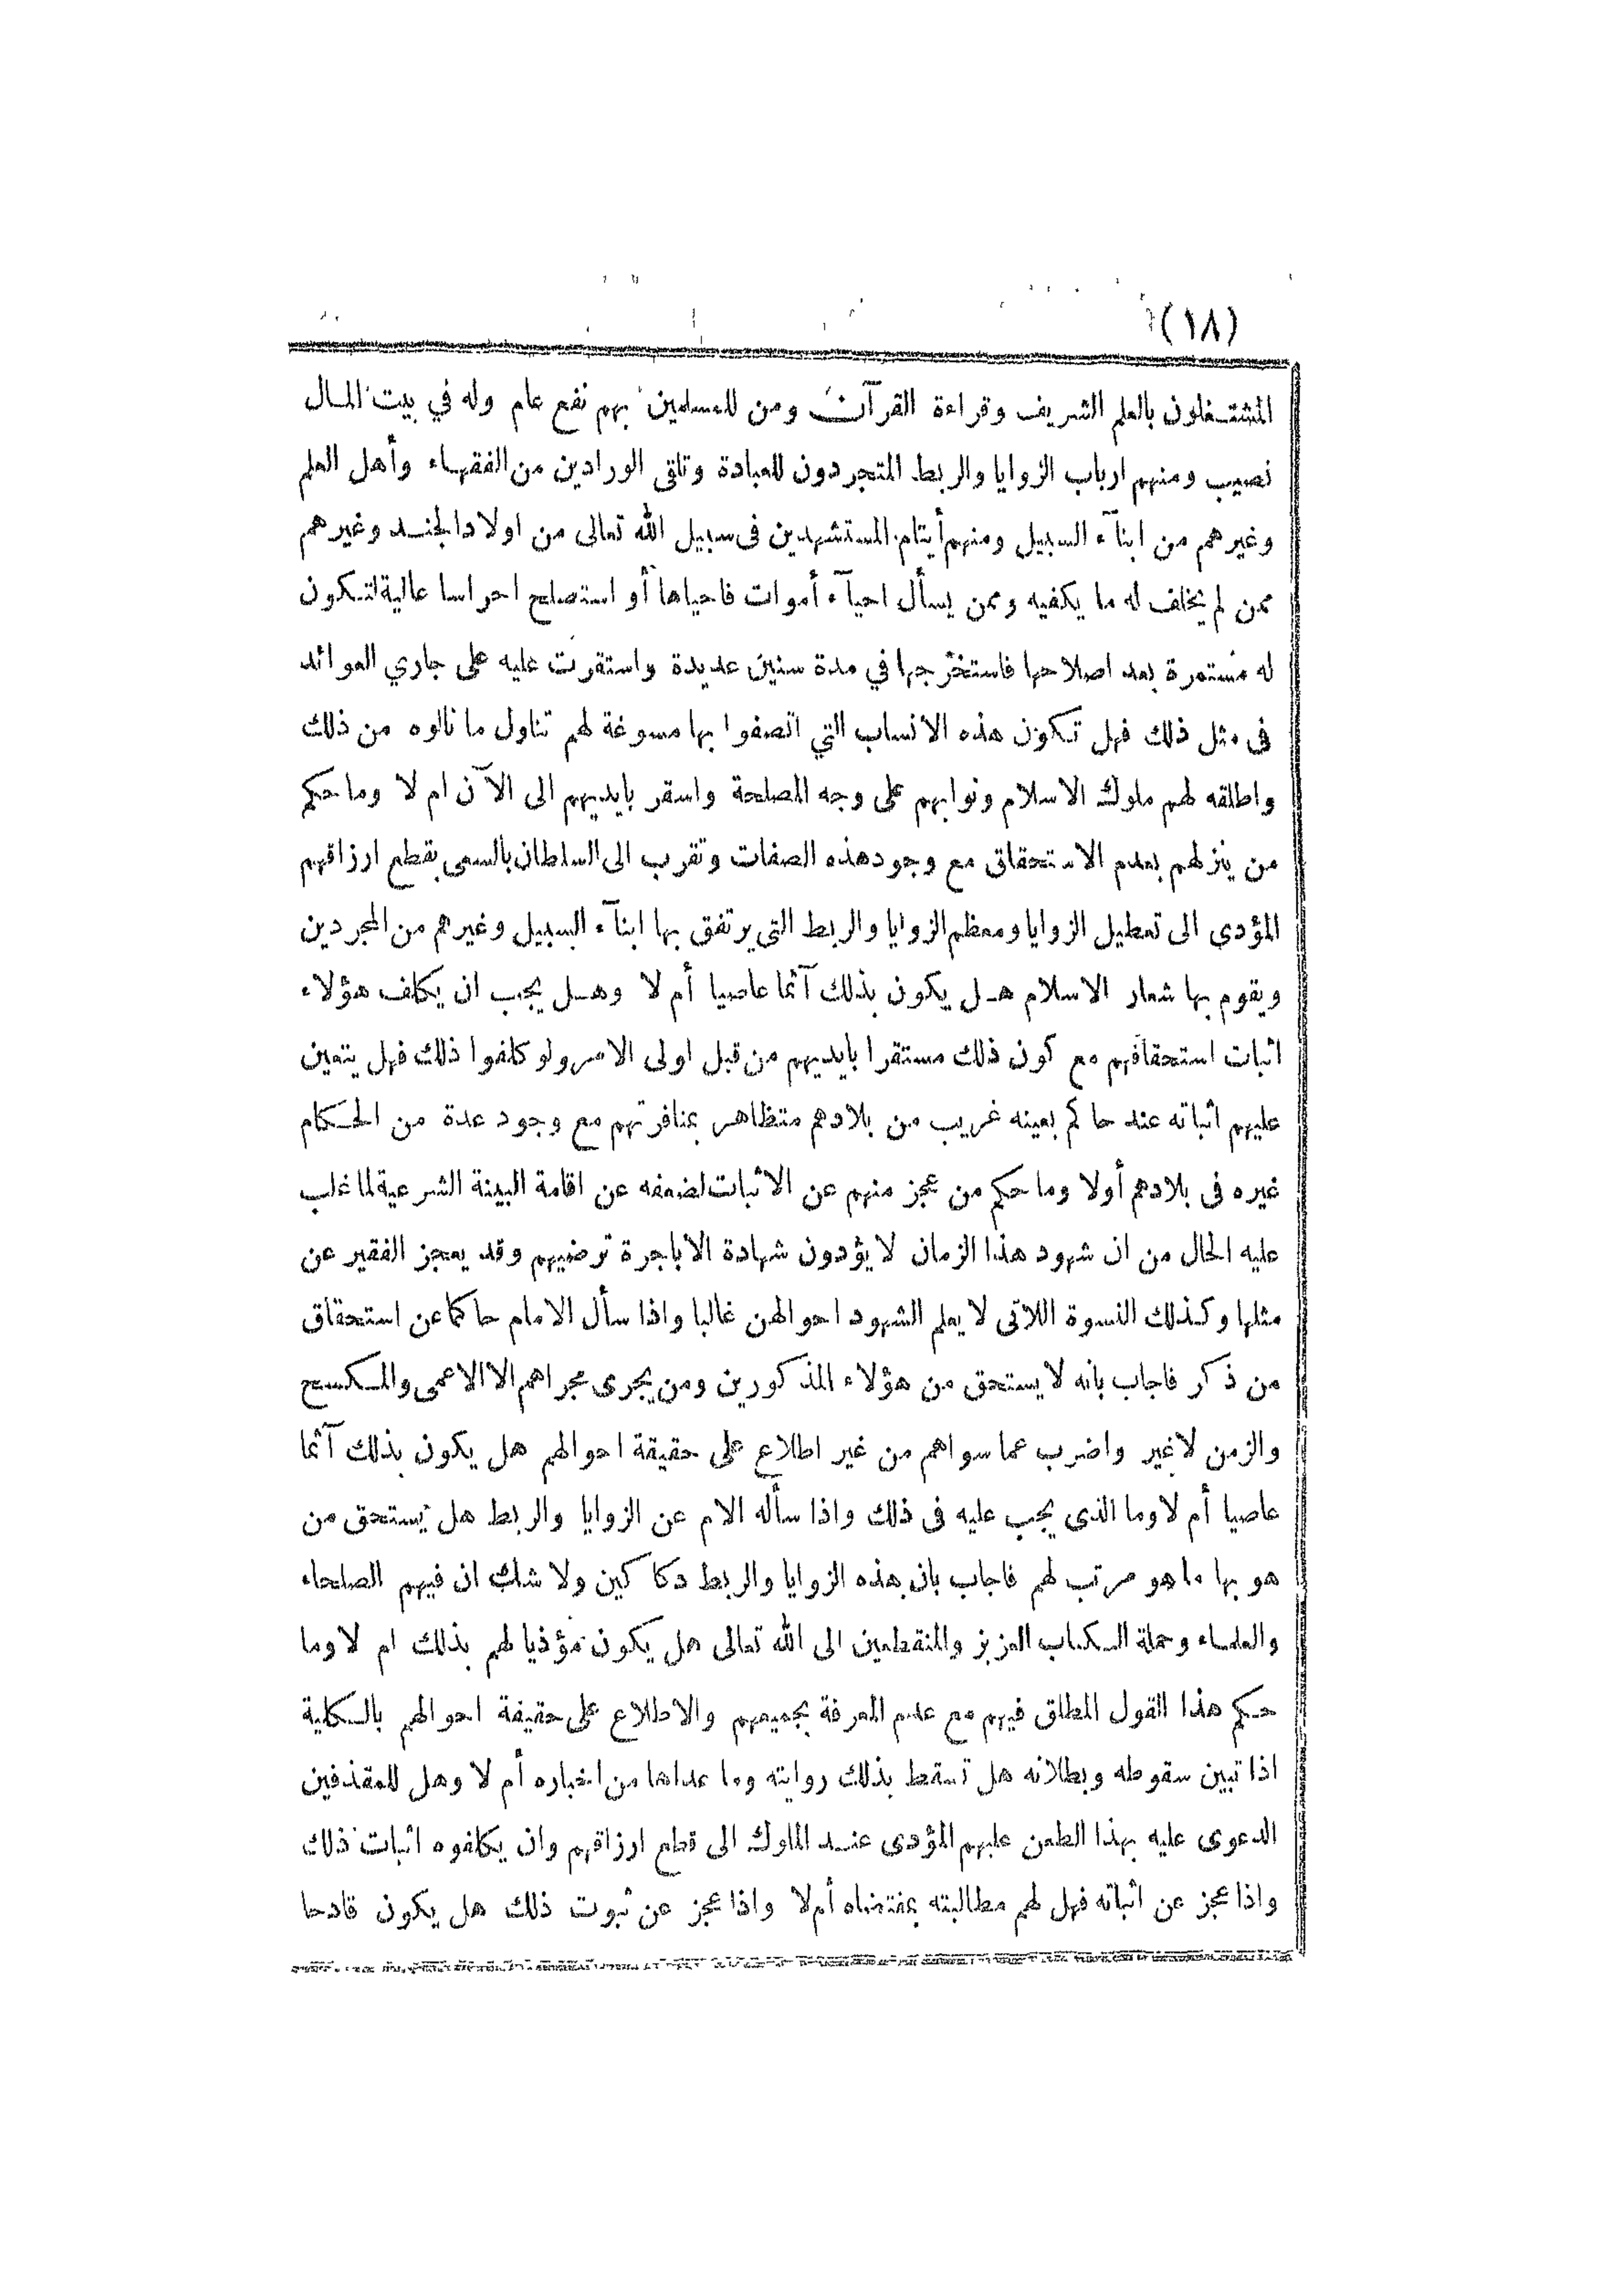 (١٨)
المشتغلون بالعلم الشريف وقراءة القرآن ومن للمسلمين بهم نفع عام وله في بيت المال
نصيب ومنهم ارباب الزوايا والربط المتجردون للعبادة وتلقى الورادين من الفقهاء وأهل العلم
وغيرهم من ابنآء السبيل ومنهم أيتام المستشهدين فى سبيل الله تعالى من اولاد الجند وغيرهم
ممن لم يخلف له ما يكفيه وممن يسأل احيآء أموات فاحياها أو استصلح احراسا عالية لتكون
له مستمرة بعد اصلاحها فاستخرجها في مدة سنين عديدة واستقرت عليه على جاري العوائد
فى مثل ذلك فهل تكون هذه الانساب التي اتصفوا بها مسوغة لهم تناول ما نالوه من ذلك
واطلقه لهم ملوك الاسلام ونوابهم على وجه المصلحة واسقر بايديهم الى الآن ام لا وما حكم
من ينزلهم بعدم الاستحقاق مع وجود هذه الصفات وتقرب الى السلطان بالسعى بقطع ارزاقهم
المؤدي الى تعطيل الزوايا ومعظم الزوايا والربط التي يرتفق بها ابنآء السبيل وغيرهم من المجردين
ويقوم بها شعار الاسلام هل يكون بذلك آثما عاصيا أم لا وهل يجب ان يكلف هؤلاء
اثبات استحقاقهم مع كون ذلك مستقرا بايديهم من قبل اولى الامر ولو كلفوا ذلك فهل يتعين
عليهم اثباته عند حاكم بعينه غريب من بلادهم متظاهر بمنافرتهم مع وجود عدة من الحكام
غيره فى بلادهم أولا وما حكم من عجز منهم عن الاثبات لضعفه عن اقامة البينة الشرعية لما غلب
عليه الحال من ان شهود هذا الزمان لا يؤدون شهادة الا باجرة ترضيهم وقد يعجز الفقير عن
مثلها وكذلك النسوة اللاتى لا يعلم الشهود احوالهن غالبا واذا سأل الامام حاكما عن استحقاق
من ذكر فاجاب بانه لا يستحق من هؤلاء المذكورين ومن يجرى مجراهم الا الاعمى والمكسح
والزمن لا غير واضرب عما سواهم من غير اطلاع على حقيقة احوالهم هل يكون بذلك آثما
عاصيا أم لا وما الذى يجب عليه فى ذلك واذا سأله الام عن الزوايا والربط هل يستحق من
هو بها ما هو مرتب لهم فاجاب بان هذه الزوايا والربط دكاكين ولا شك ان فيهم الصلحاء
والعلماء وحملة الكتاب العزيز والمنقطعين الى الله تعالى هل يكون مؤذيا لهم بذلك ام لا وما
حكم هذا القول المطلق فيهم مع عدم المعرفة بجميعهم والاطلاع على حقيقة احوالهم بالكلية
اذا تبين سقوطه وبطلانه هل تسقط بذلك روايته وما عداها من اخباره أم لا وهل للمقذفين
الدعوى عليه بهذا الطعن عليهم المؤدى عند الملوك الى قطع ارزاقهم وان يكلفوه اثبات ذلك
واذا عجز عن اثباته فهل لهم مطالبته بمقتضاه أم لا واذا عجز عن ثبوت ذلك هل يكون قادحا